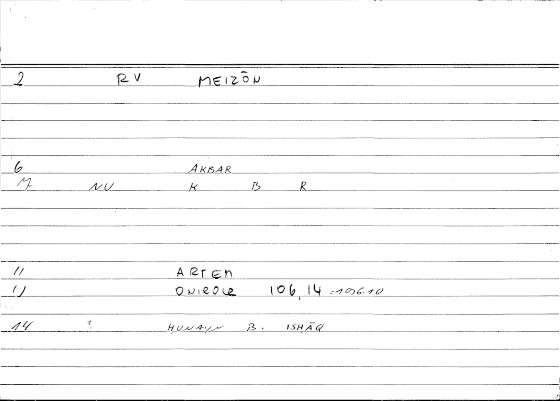 2 RV MEIZŌN
6 AKBAR
M NU K B R
11 ARTEM
11 ONIROCR 106,14
14 ? ḤUNAYN B. ISḤĀQ